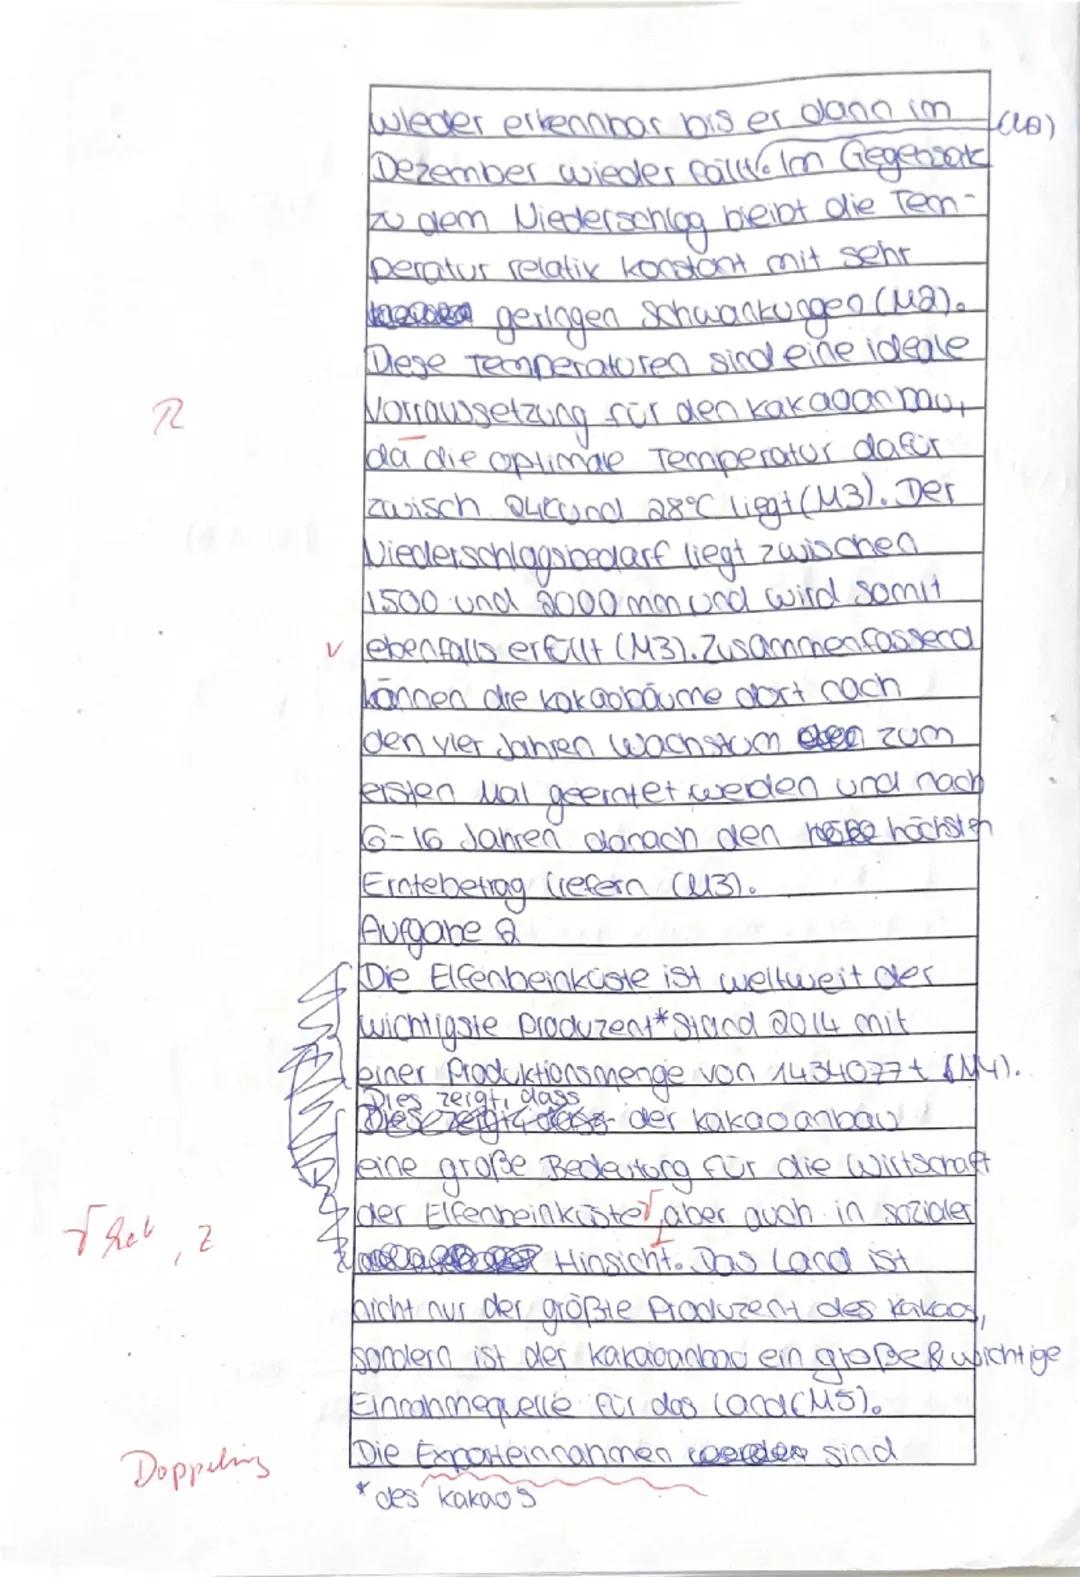 wieder erkennbar bis er dann im (M2)
Dezember wieder fällt. Im Gegensatz
zu dem Niederschlag bleibt die Tem-
peratur relativ konstant mit sehr
geringen Schwankungen (M2).
Diese Temperaturen sind eine ideale
R Vorraussetzung für den Kakaoanbau,
da die optimale Temperatur dafür
zwisch 24°C und 28°C liegt (M3). Der
Niederschlagsbedarf liegt zwischen
1500 und 2000 mm und wird somit
v ebenfalls erfüllt (M3). Zusammenfassend
können die Kakaobäume dort nach
den vier Jahren Wachstum zum
ersten Mal geerntet werden und nach
6-16 Jahren danach den höchsten
Erntebetrag liefern (M3).
Aufgabe 2
Die Elfenbeinküste ist weltweit der
wichtigste Produzent* Stand 2014 mit
einer Produktionsmenge von 1434077t (M4).
Dies zeigt, dass
der Kakaoanbau
eine große Bedeutung für die Wirtschaft
der Elfenbeinküste, aber auch in sozialer
Z Hinsicht. Das Land ist
nicht nur der größte Produzent des Kakaos,
sondern ist der Kakaoanbau ein große & wichtige
Einnahmequelle für das Land (M5).
Doppelung Die Exporteinnahmen sind
* des Kakaos